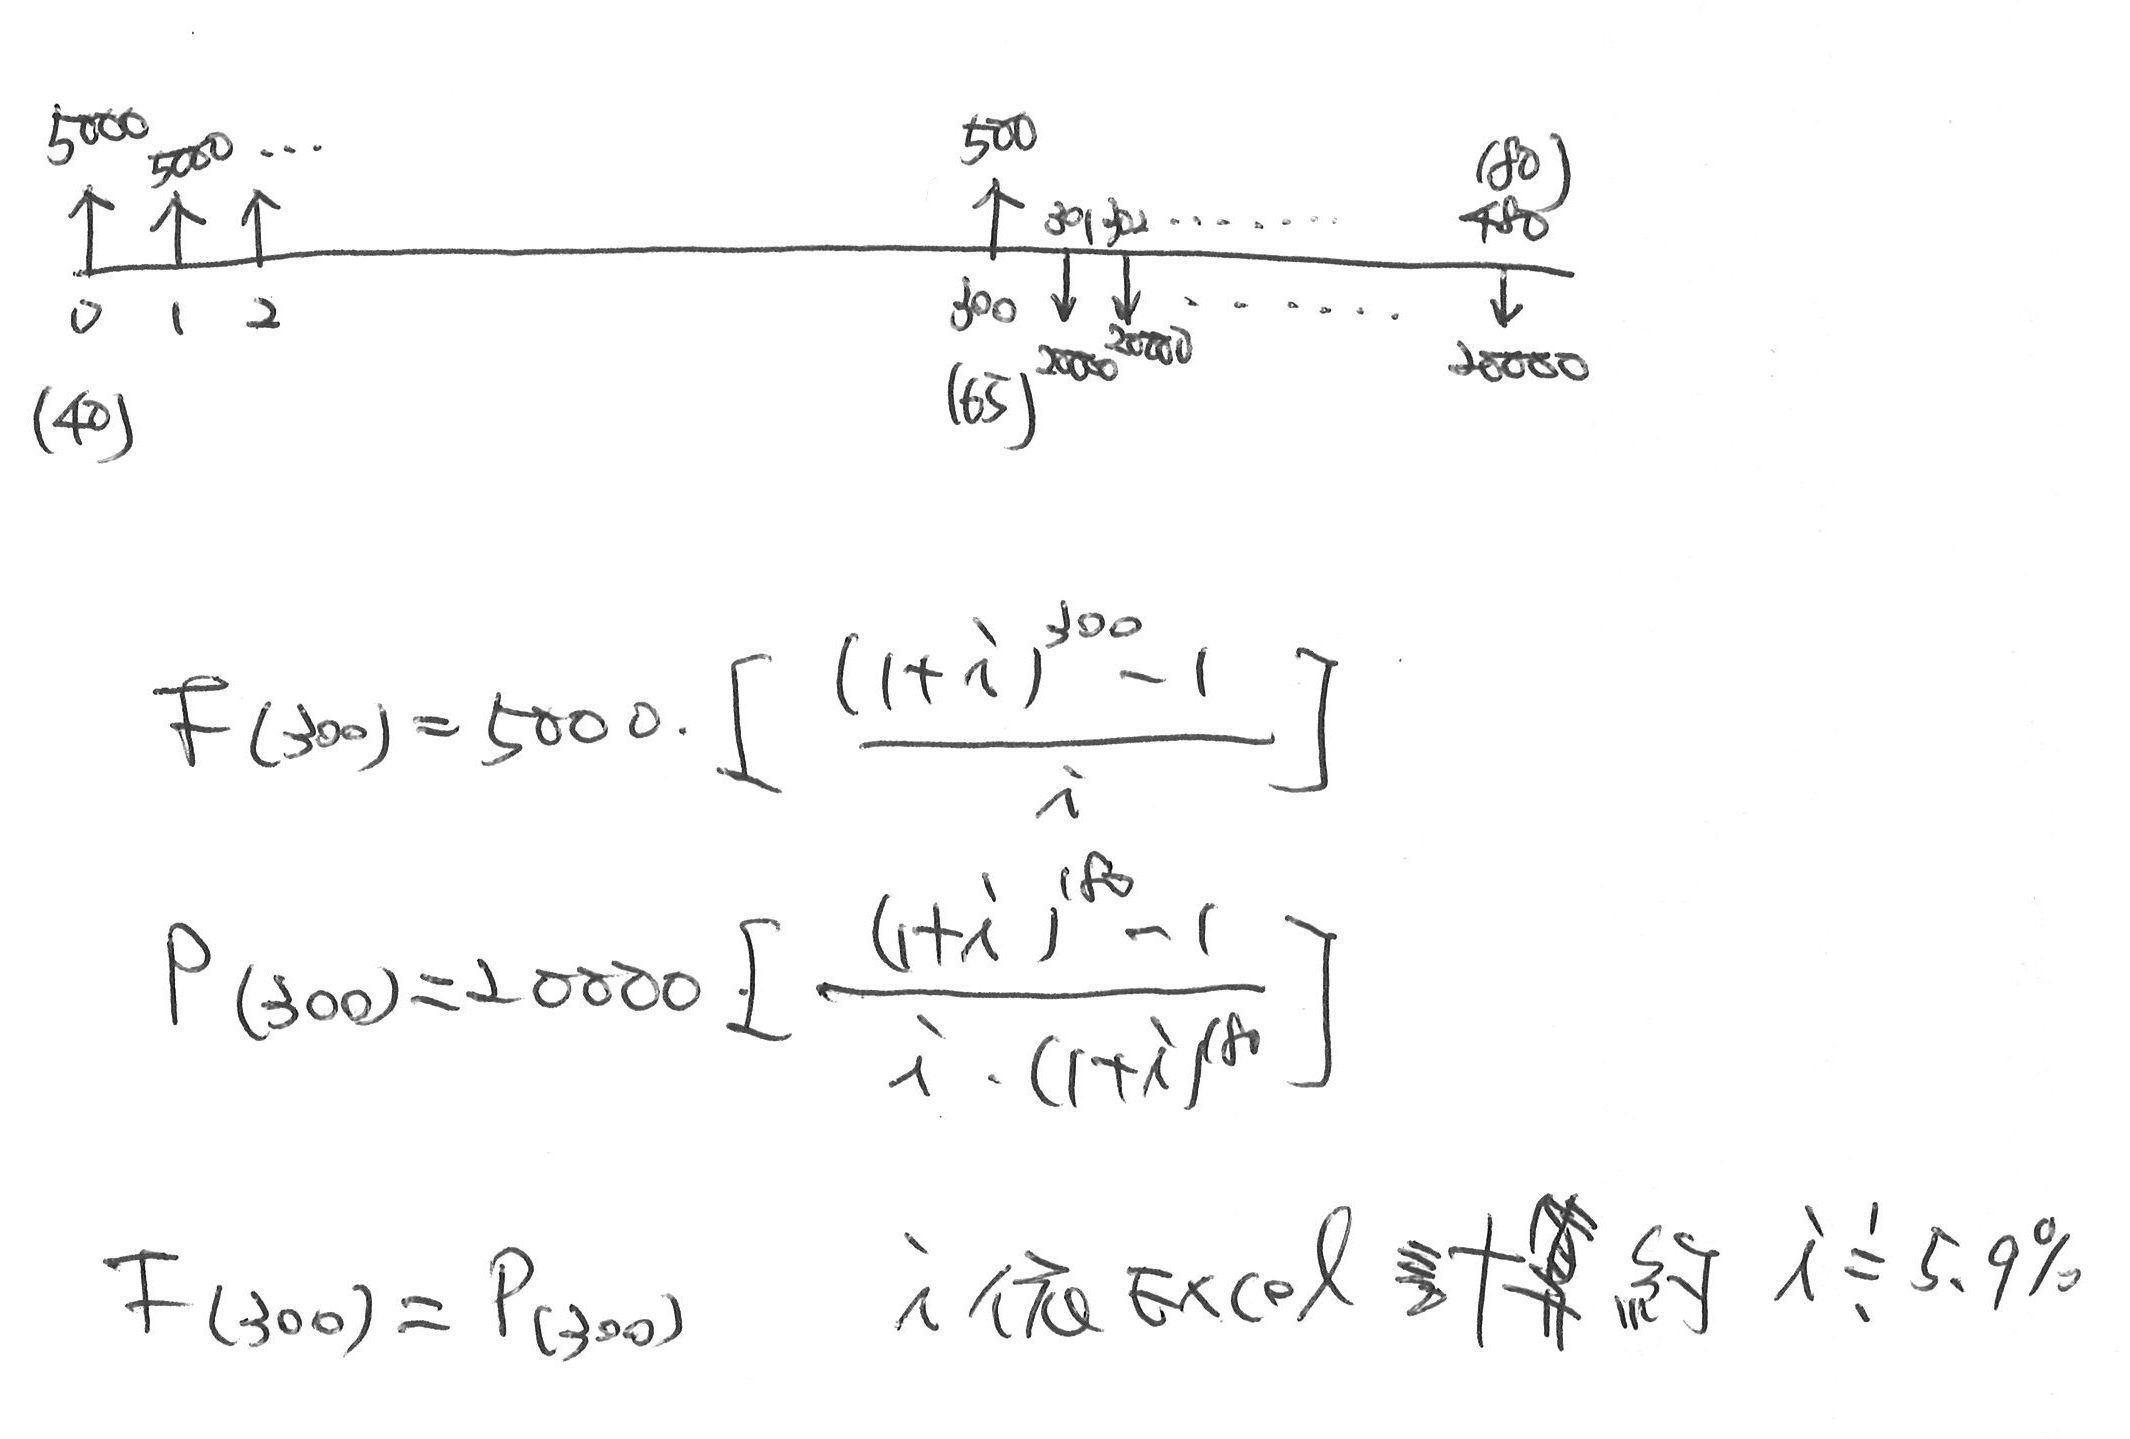 5000 5000 ... 500 (80)
301 302 ........ 480
0 1 2 300 ........
20000 20000 20000
(40) (65)
F(300) = 5000 · [ ((1+i)^300 - 1) / i ]
P(300) = 20000 [ ((1+i)^180 - 1) / (i · (1+i)^180) ]
F(300) = P(300) i 值 Excel 計算約 i ≐ 5.9%